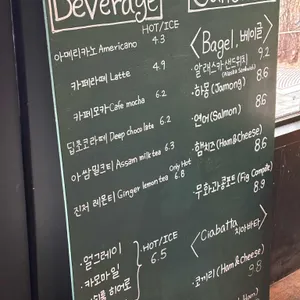 Beverage
HOT/ICE
아메리카노 Americano 4.3
카페라떼 Latte 4.9
카페모카 Cafe mocha 6.2
딥초코라떼 Deep chocolate 6.2
아쌈밀크티 Assam milk tea 6.3
Only Hot
진저 레몬티 Ginger lemon tea 6.8
얼그레이
카모마일
HOT/ICE
6.5
<Bagel, 베이글>
9.2
(Alaska Sandwich)
하몽 (Jamong) 8.6
연어 (Salmon) 8.6
햄치즈 (Ham&Cheese) 8.6
무화과콩포트 (Fig Compote) 8.9
<Ciabatta 치아바타>
(Ham&Cheese) 9.8